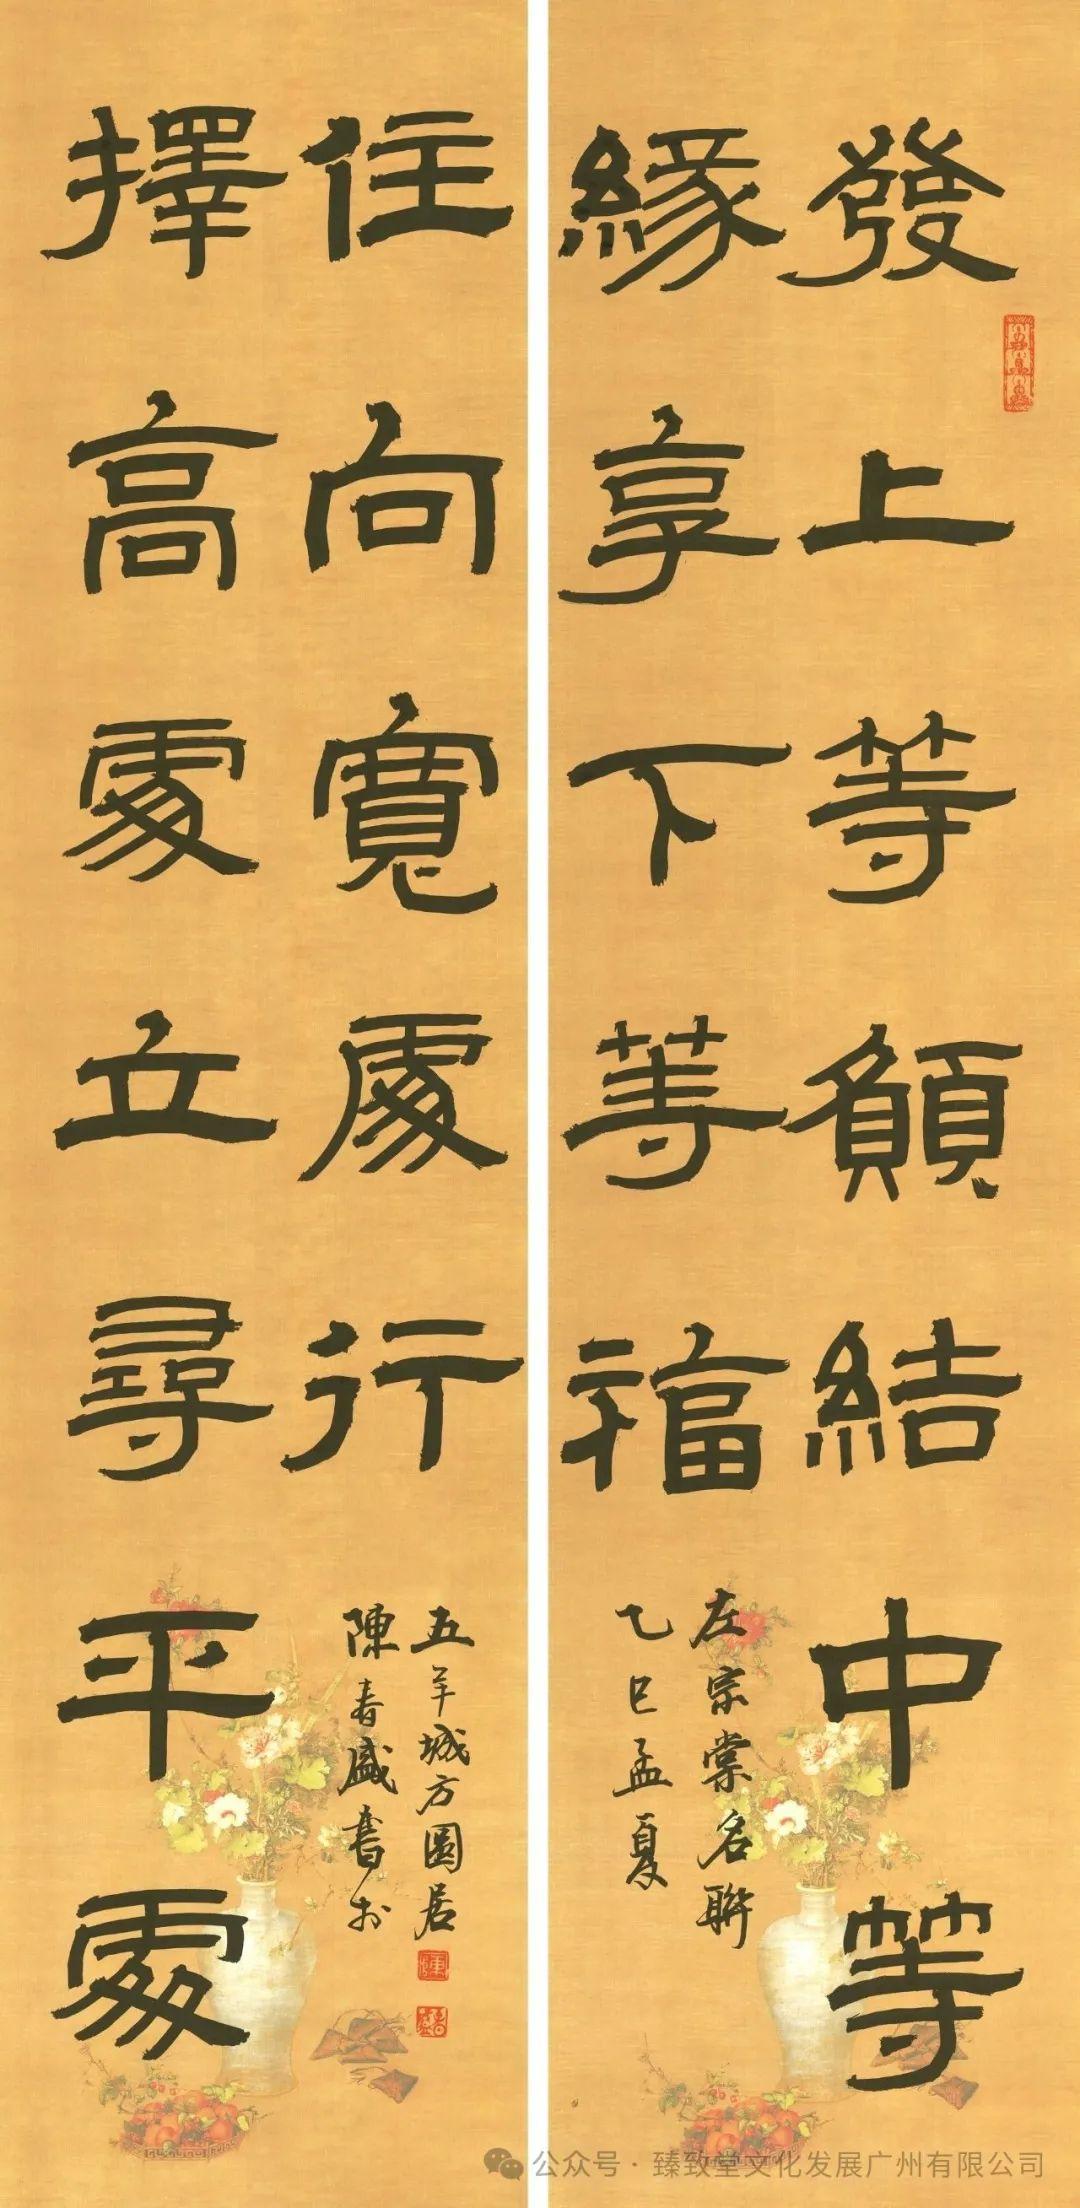 發上等願結中等
緣享下等福
左宗棠名聯
乙巳孟夏
擇高處立尋平處
住向寬處行
陳春盛書於
五羊城方圓居
公众号·臻致堂文化发展广州有限公司